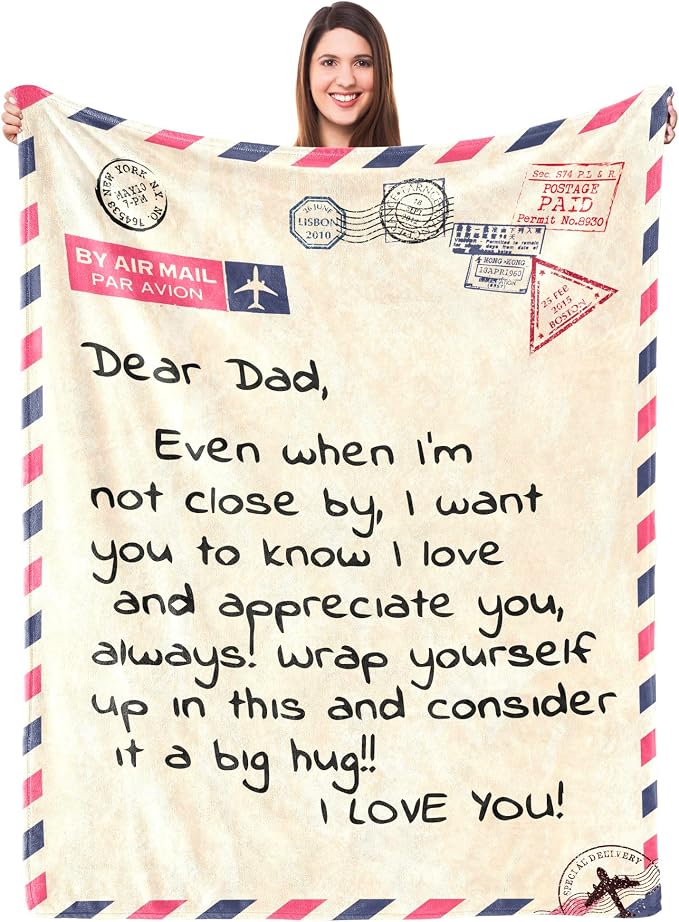 NEW YORK N.Y.
MAY 10
7-PM
NO. 764533
16 JUNE
LISBON
2010
Sec. S74 P.L & R.
POSTAGE
PAID
Permit No.8930
HONG-KONG
13APR1960
25 FEB
2015
BOSTON
BY AIR MAIL
PAR AVION
Dear Dad,
Even when i'm
not close by, I want
you to know I love
and appreciate you,
always! wrap yourself
up in this and consider
it a big hug!!
I LOVE YOU!
SPECIAL DELIVERY